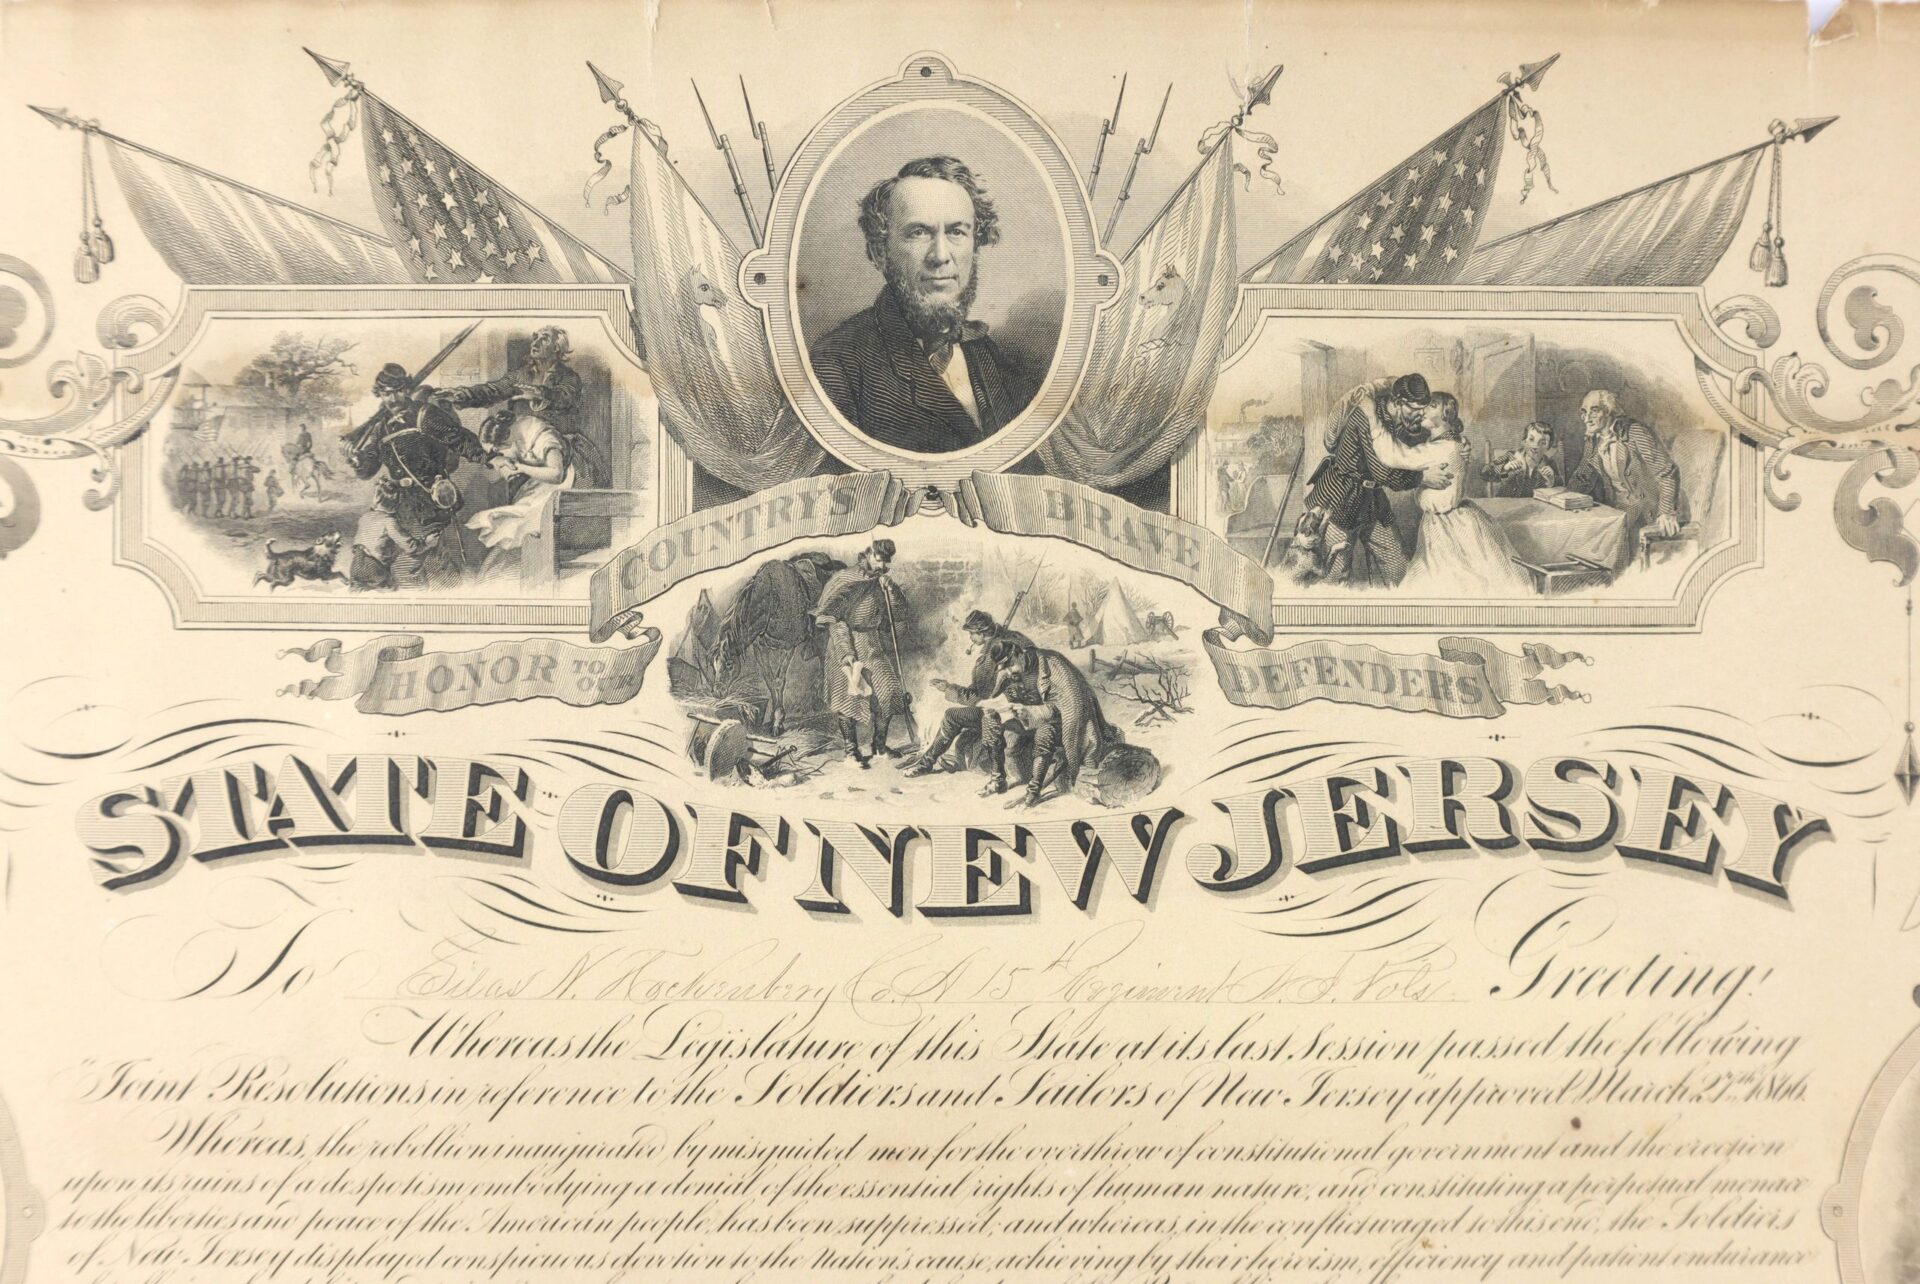 HONOR TO OUR COUNTRY'S BRAVE DEFENDERS
STATE OF NEW JERSEY
To Silas N. Hockenbery Co. A 15th Regiment N. J. Vols. Greeting!
Whereas the Legislature of this State at its last Session passed the following
"Joint Resolutions in reference to the Soldiers and Sailors of New Jersey" approved March 27th, 1866.
Whereas, the rebellion inaugurated by misguided men for the overthrow of constitutional government and the erection
upon its ruins of a despotism embodying a denial of the essential rights of human nature, and constituting a perpetual menace
to the liberties and peace of the American people, has been suppressed; and whereas, in the conflict waged to this end, the Soldiers
of New Jersey displayed conspicuous devotion to the Nation's cause, achieving by their heroism, efficiency and patient endurance